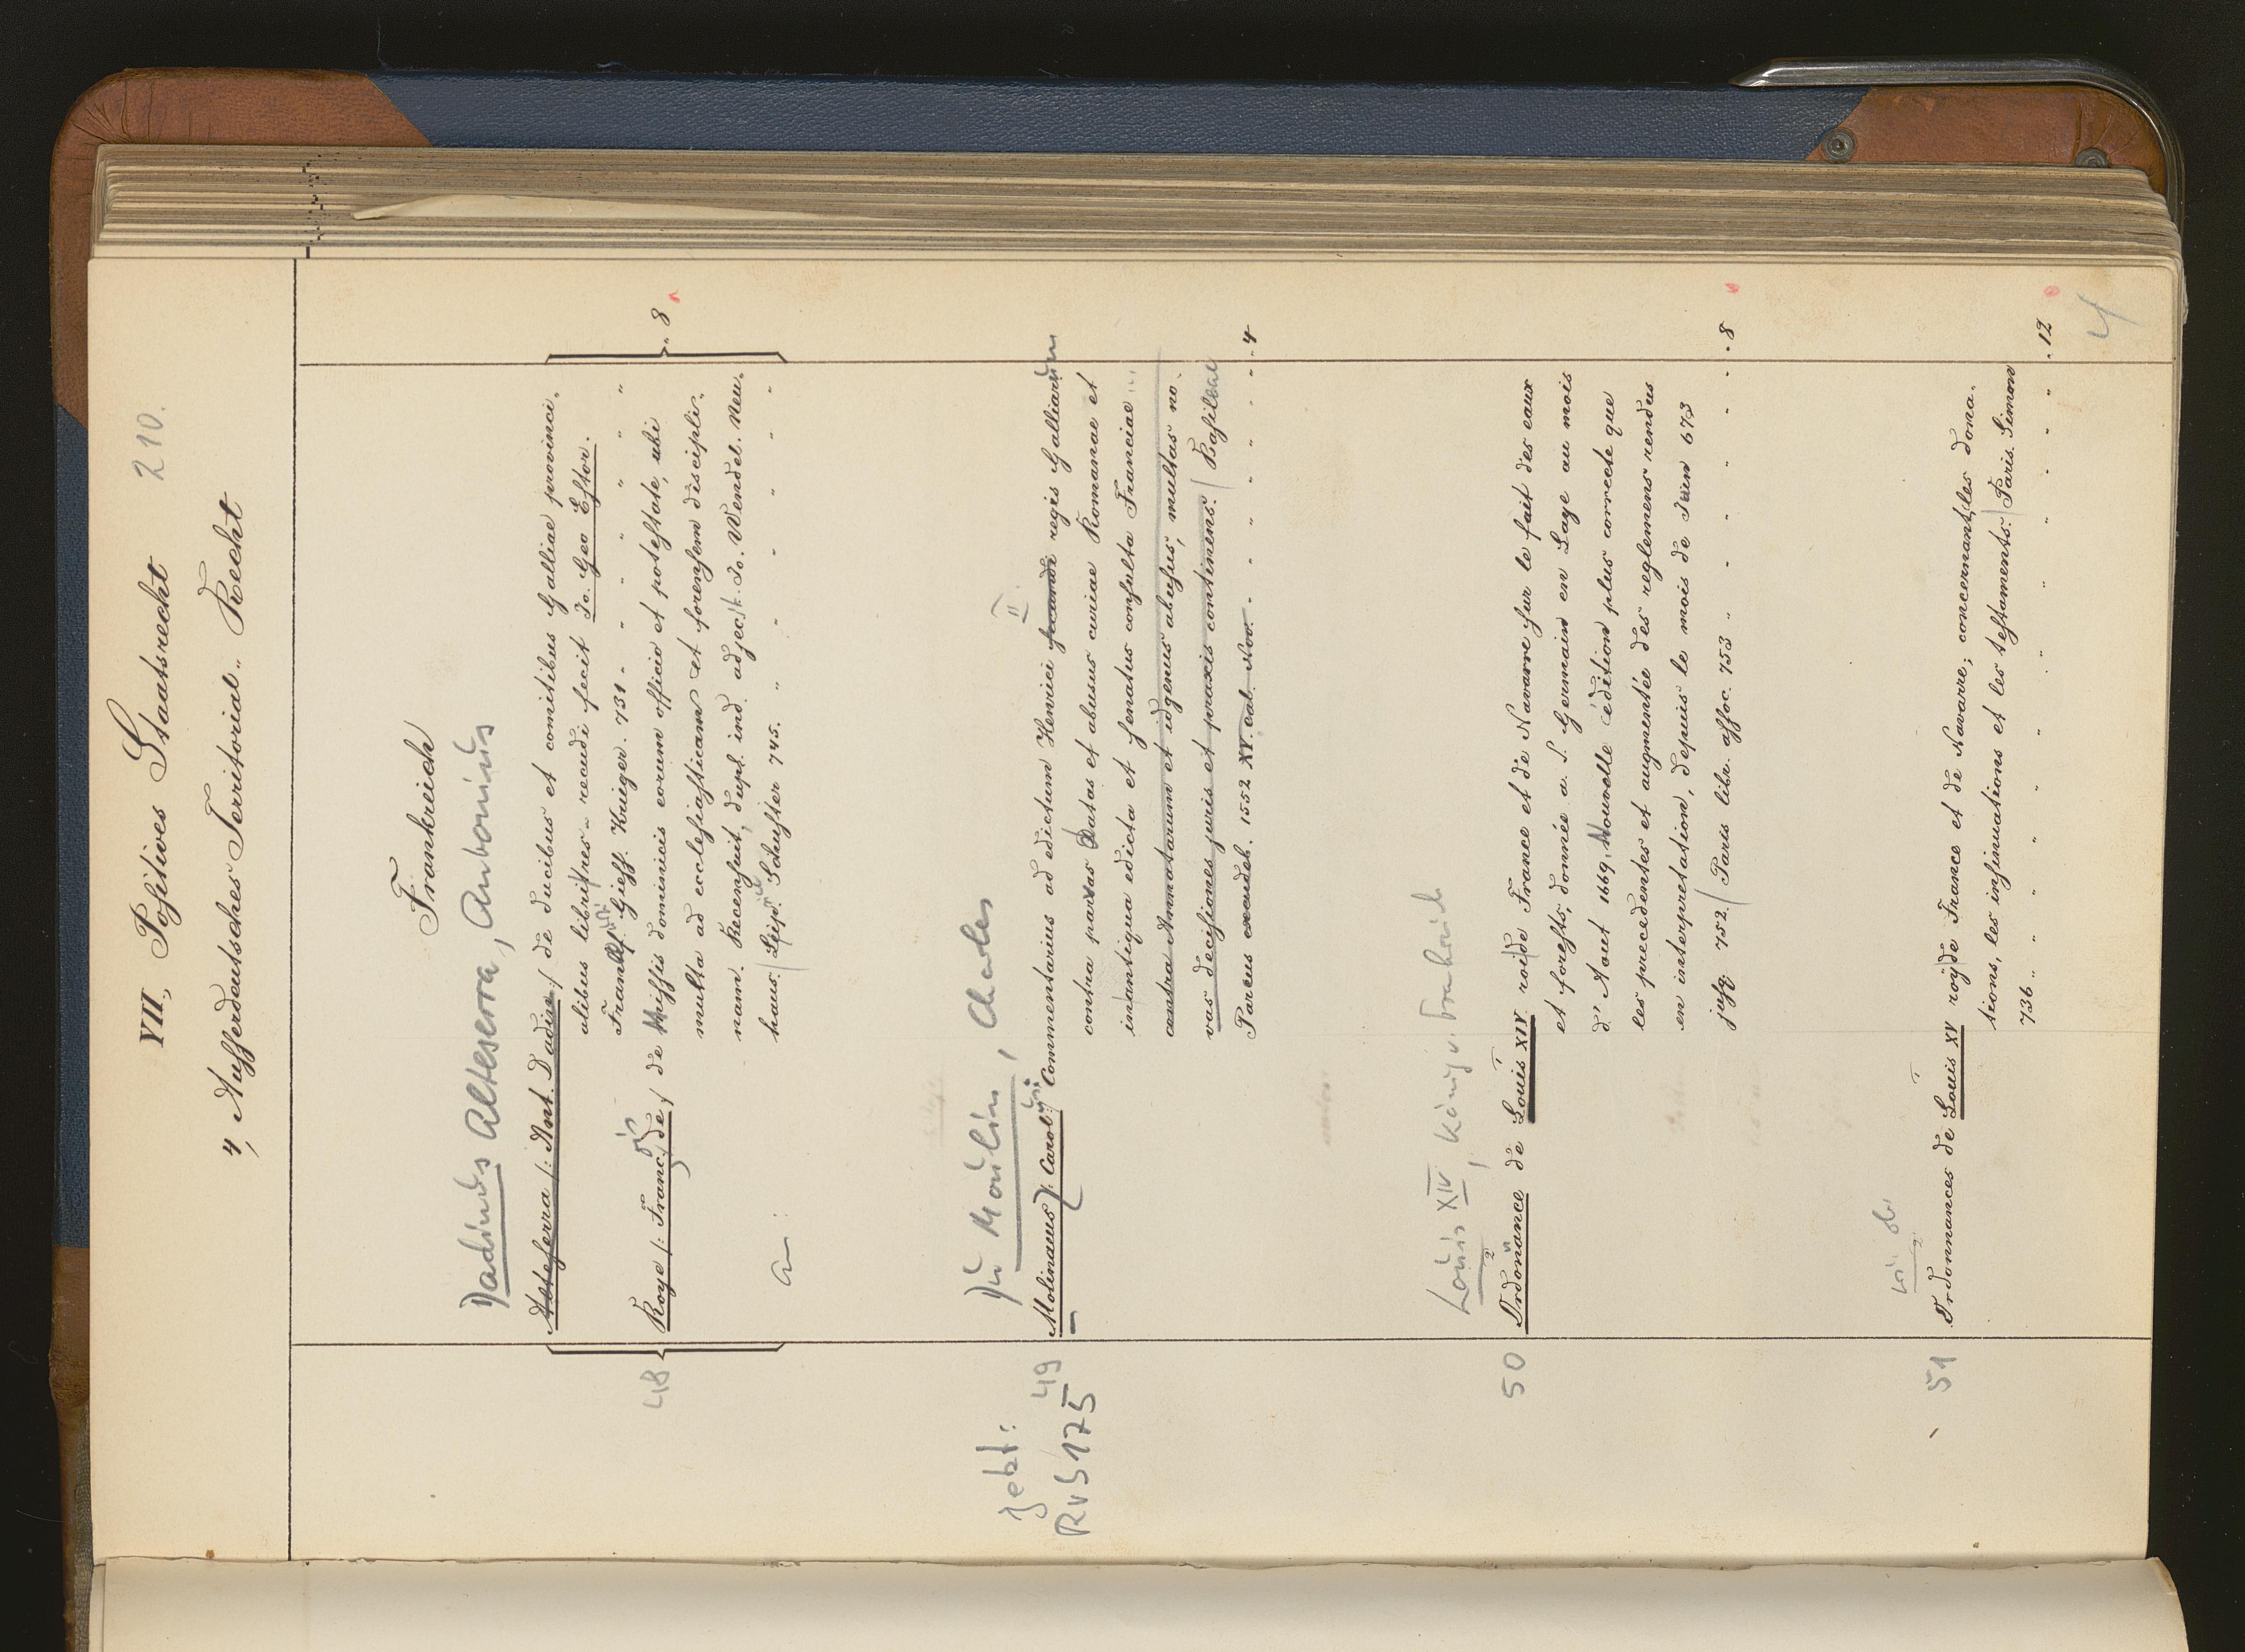 VII, Positives Staatsrecht 210.
4, Ausserdeutsches Territorial-Recht
Frankreich
Dadinus Alteserra, Antonius
Alteserra /: Ant. Dadin:/ de ducibus et comitibus Galliae provinci-
alibus libri tres - recudi fecit Jo. Geo Estor.
Francof. Giess. Krieger. 731 - - - - - - . 8
48 Roye /: Franc. de :/ de missis dominicis eorum officio et potestate, ubi
multa ad ecclesiasticam et forensem discipli-
nam. Recensuit, dupl. ind. adject. Jo. Wendel. Neu-
haus. / Leips. Schuster 745.
an:
Du Moulin, Charles
jetzt: 49
RvS 175
Molinaeus /: Carol:/ Commentarius ad edictum Henrici secundi II. regis Galliarum
contra parvas Datas et abusus curiae Romanae et
in antiqua edicta et senatus consulta Franciae ...
contra Annatarum et id genus abusus, multas no-
vas decisiones juris et praxis continens. / Basileae
Parcus excudeb. 1552 XV. cal. Nov. - - - - - - . 4
Louis XIV, König v. Frankreich
50 Ordonance de Louis XIV roi de France et de Navarre sur le fait des eaux
et forests, donnée a S. Germain en Laye au mois
d'Aout 1669. Nouvelle édition plus correcte que
les precedentes et augmentée des reglemens rendus
en interpretation, depuis le mois de Juin 673
jusq. 752. / Paris libr. assoc. 753 - - - - - - . 8
51 Ordonnances de Louis XV roy de France et de Navarre, concernant les dona-
tions, les insinuations et les testaments. / Paris. Simon
736 - - - - - - . 12
4